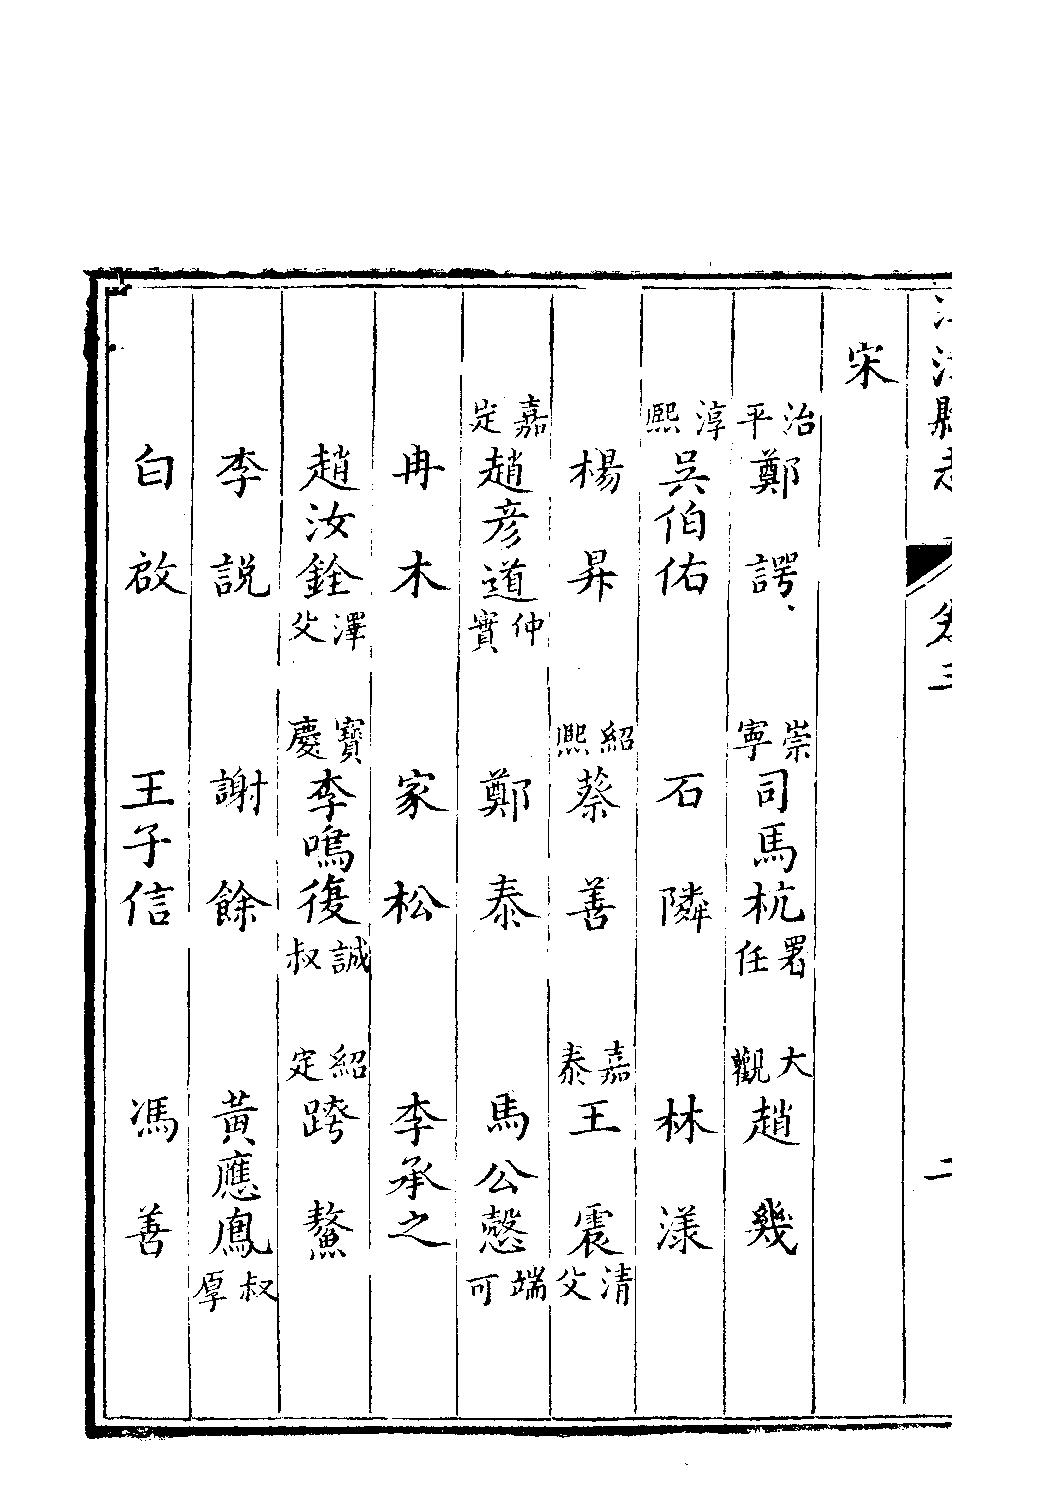 宋
治平鄭諤 崇寧司馬杭署任 大觀趙幾
淳熙吳伯佑 石隣 林漾
楊昇 紹熙蔡善 嘉泰王震清父
嘉定趙彥道仲實 鄭泰 馬公愨端可
冉木 家松 李承之
趙汝銓澤父 寶慶李鳴復誠叔 紹定跨鰲
李説 謝餘 黃應鳳叔厚
白啟 王子信 馮善